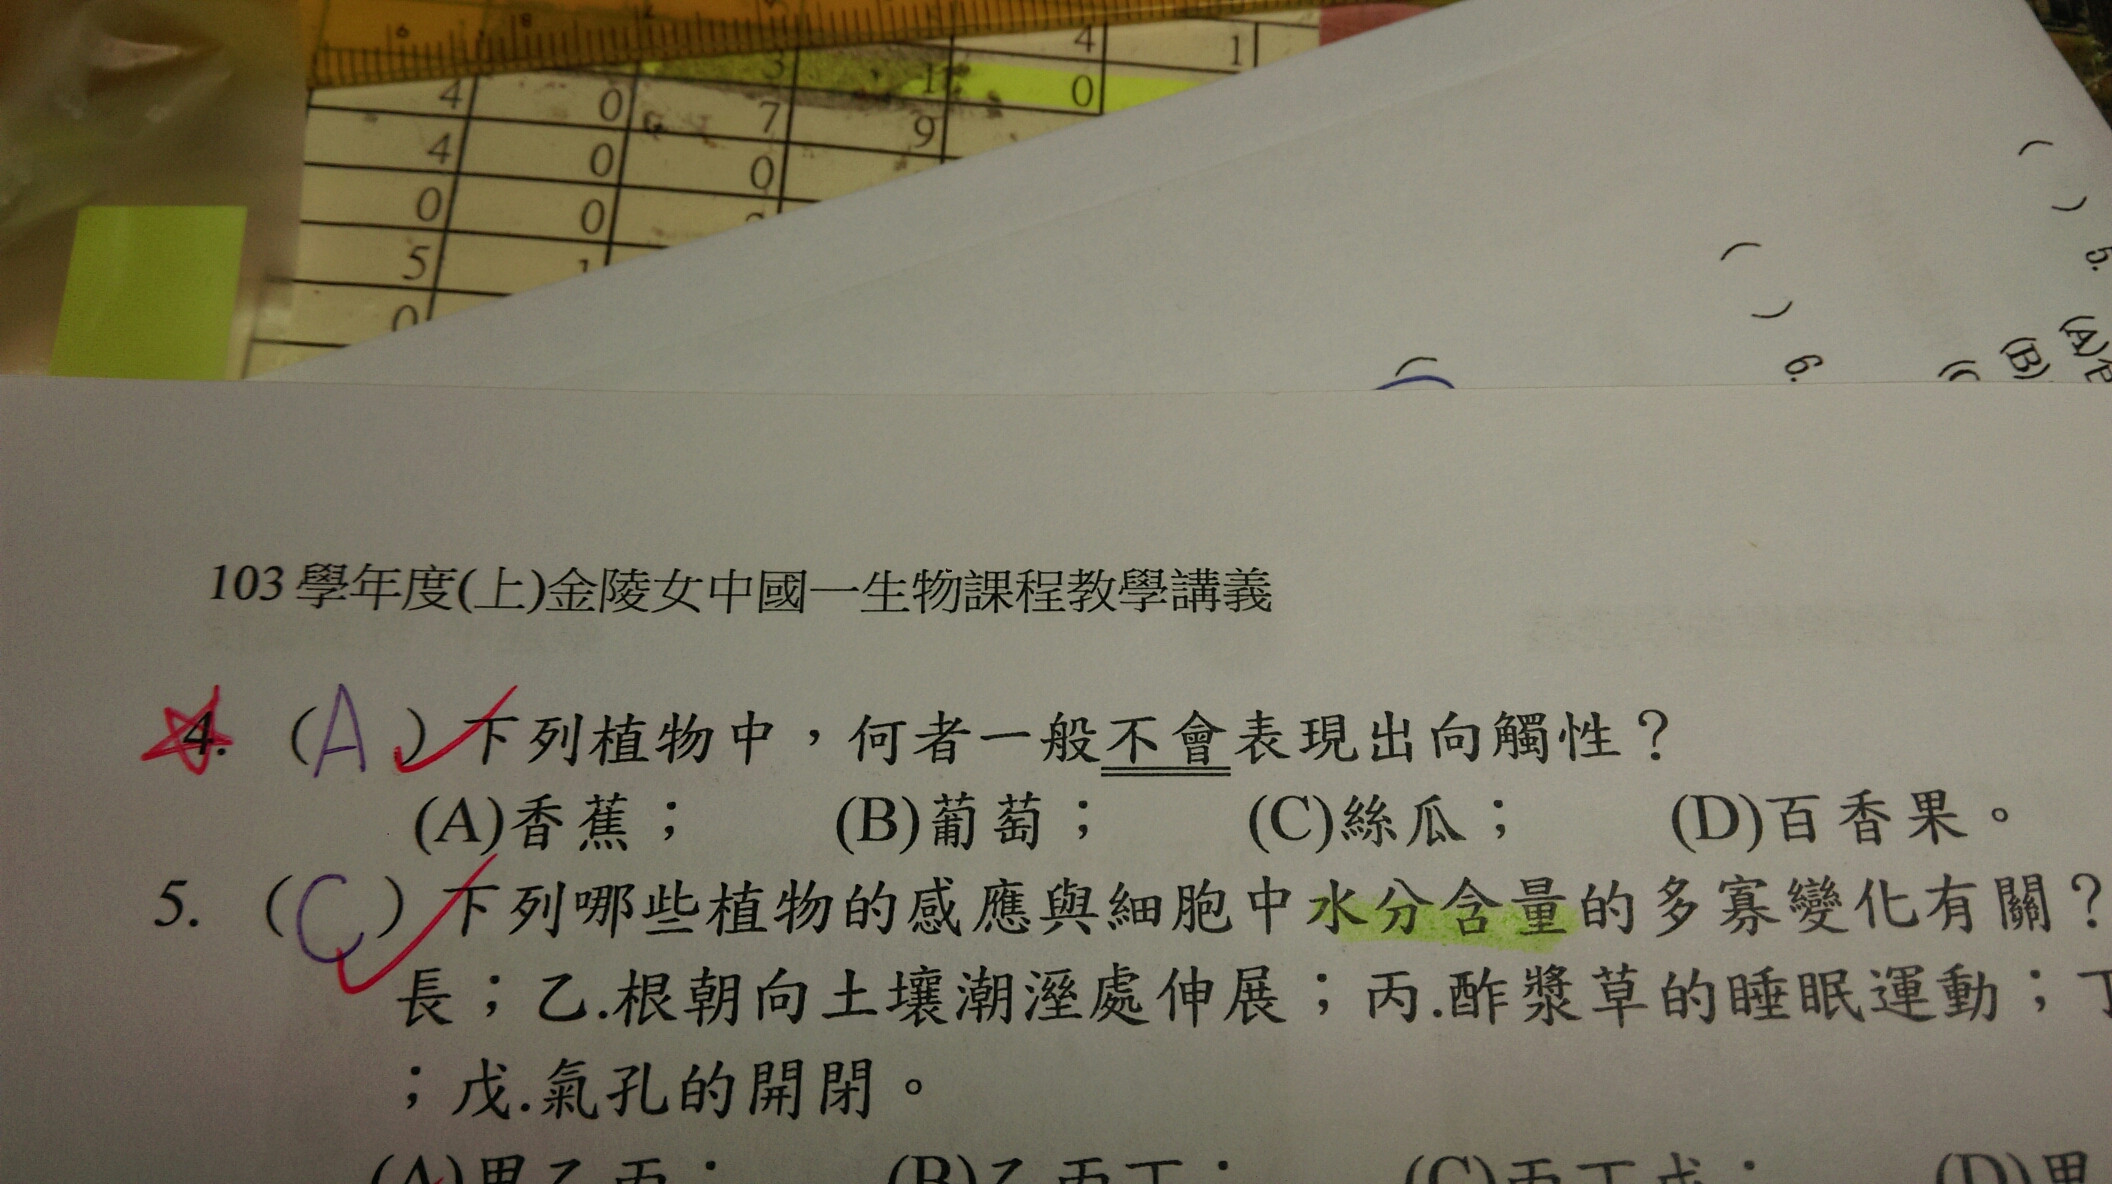 6 8
4 1
3 1 0
4 0 7 9
4 0 0
0 0
5 1
0
5.
(A)
(B)
6.
103學年度(上)金陵女中國一生物課程教學講義
4. (A) 下列植物中，何者一般不會表現出向觸性？
(A)香蕉； (B)葡萄； (C)絲瓜； (D)百香果。
5. (C) 下列哪些植物的感應與細胞中水分含量的多寡變化有關？
長；乙.根朝向土壤潮溼處伸展；丙.酢漿草的睡眠運動；丁
；戊.氣孔的開閉。
(A)甲乙丙； (B)乙丙丁； (C)丙丁戊； (D)甲